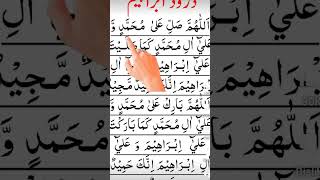 درود ابراهيم
اَللّٰهُمَّ صَلِّ عَلٰى مُحَمَّدٍ وَّ
عَلٰٓى اٰلِ مُحَمَّدٍ كَمَا صَلَّيْتَ
عَلٰٓى اِبْرَاهِيْمَ وَ عَلٰٓى اٰلِ
اِبْرَاهِيْمَ اِنَّكَ حَمِيْدٌ مَّجِيْدٌ
اَللّٰهُمَّ بَارِكْ عَلٰى مُحَمَّدٍ وَّ
عَلٰٓى اٰلِ مُحَمَّدٍ كَمَا بَارَكْتَ
عَلٰٓى اِبْرَاهِيْمَ وَ عَلٰٓى
اٰلِ اِبْرَاهِيْمَ اِنَّكَ حَمِيْدٌ